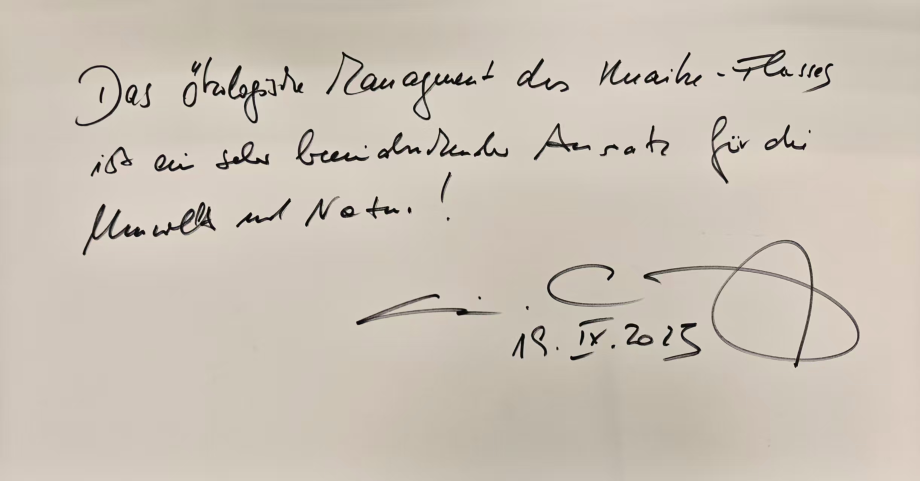 Das ökologische Managment des Huaihe-Flusses
ist ein sehr beeindruckender Ansatz für die
Umwelt und Natur.!
19. IX. 2025